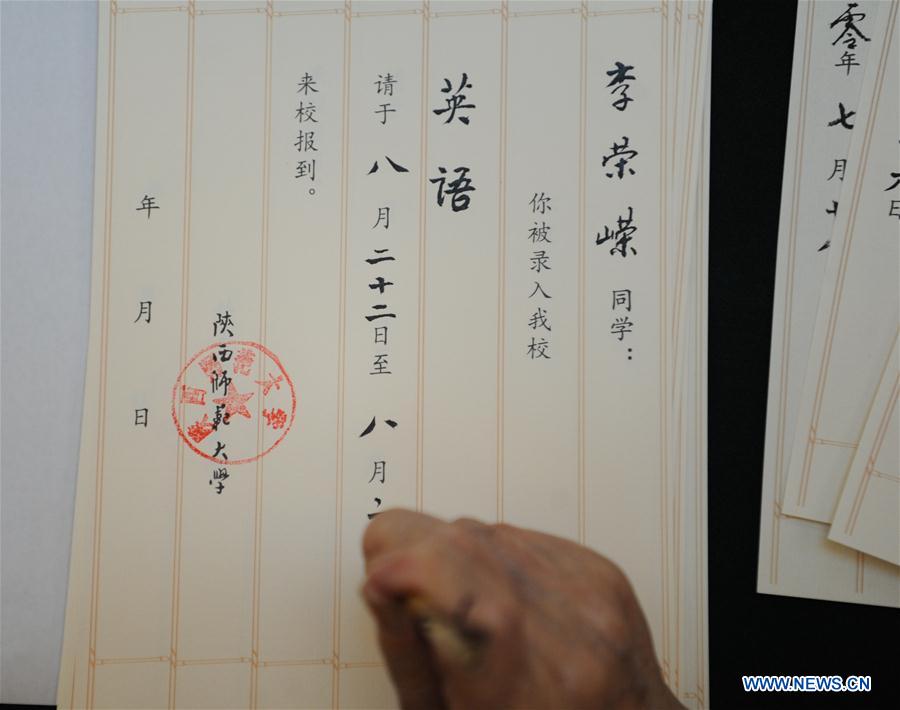 李荣嵘同学：
你被录入我校
英语
请于八月二十二日至八月二
来校报到。
陝西師範大學
年月日
零年七月
日
WWW.NEWS.CN